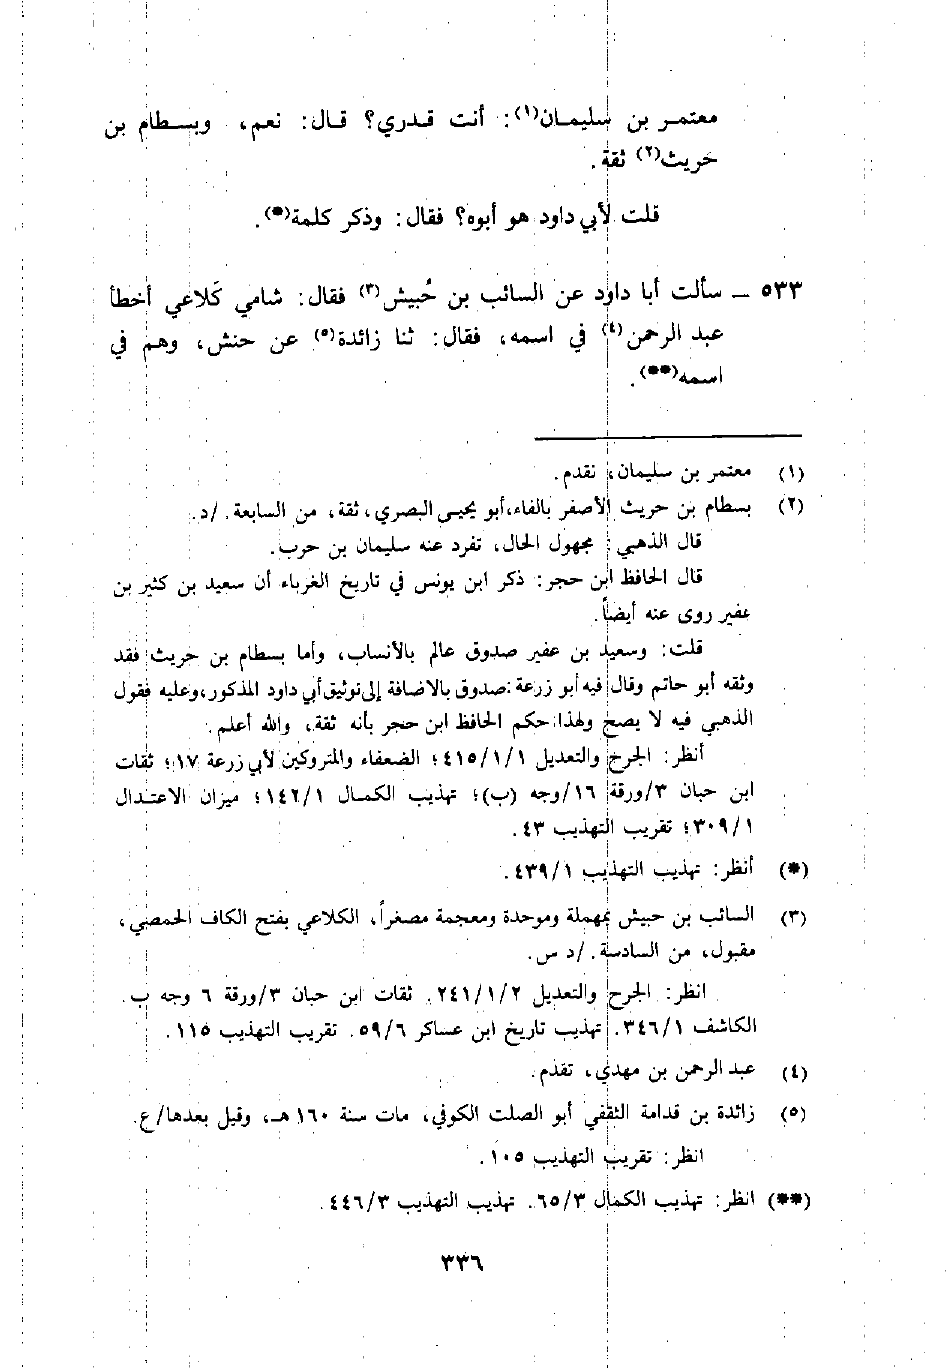 معتمر بن سليمان(١): أنت قدري؟ قال: نعم، وبسطام بن
حريث(٢) ثقة.
قلت لأبي داود هو أبوه؟ فقال: وذكر كلمة(*).
٥٣٣ ـ سألت أبا داود عن السائب بن حُبيش(٣) فقال: شامي كَلاعي أخطأ
عبد الرحمن(٤) في اسمه، فقال: ثنا زائدة(٥) عن حنش، وهم في
اسمه(**).
(١) معتمر بن سليمان، تقدم.
(٢) بسطام بن حريث الأصفر بالفاء، أبو يحيى البصري، ثقة، من السابعة. /د.
قال الذهبي: مجهول الحال، تفرد عنه سليمان بن حرب.
قال الحافظ ابن حجر: ذكر ابن يونس في تاريخ الغرباء أن سعيد بن كثير بن
عفير روى عنه أيضاً.
قلت: وسعيد بن عفير صدوق عالم بالأنساب، وأما بسطام بن حريث فقد
وثقه أبو حاتم وقال فيه أبو زرعة: صدوق بالاضافة إلى توثيق أبي داود المذكور، وعليه فقول
الذهبي فيه لا يصح ولهذا حكم الحافظ ابن حجر بأنه ثقة، والله أعلم.
أنظر: الجرح والتعديل ٤١٥/١/١؛ الضعفاء والمتروكين لأبي زرعة ١٧؛ ثقات
ابن حبان ٣/ورقة ١٦/وجه (ب)؛ تهذيب الكمال ١٤٦/١؛ ميزان الاعتدال
٣٠٩/١؛ تقريب التهذيب ٤٣.
(*) أنظر: تهذيب التهذيب ٤٣٩/١.
(٣) السائب بن حبيش بمهملة وموحدة ومعجمة مصغراً، الكلاعي بفتح الكاف الحمصي،
مقبول، من السادسة. /د س.
انظر: الجرح والتعديل ٢٤١/١/٢. ثقات ابن حبان ٣/ورقة ٦ وجه ب.
الكاشف ٣٤٦/١. تهذيب تاريخ ابن عساكر ٥٩/٦. تقريب التهذيب ١١٥.
(٤) عبد الرحمن بن مهدي، تقدم.
(٥) زائدة بن قدامة الثقفي أبو الصلت الكوفي، مات سنة ١٦٠ هـ، وقيل بعدها/ع.
انظر: تقريب التهذيب ١٠٥.
(**) انظر: تهذيب الكمال ٦٥/٣. تهذيب التهذيب ٤٤٦/٣.
٣٣٦